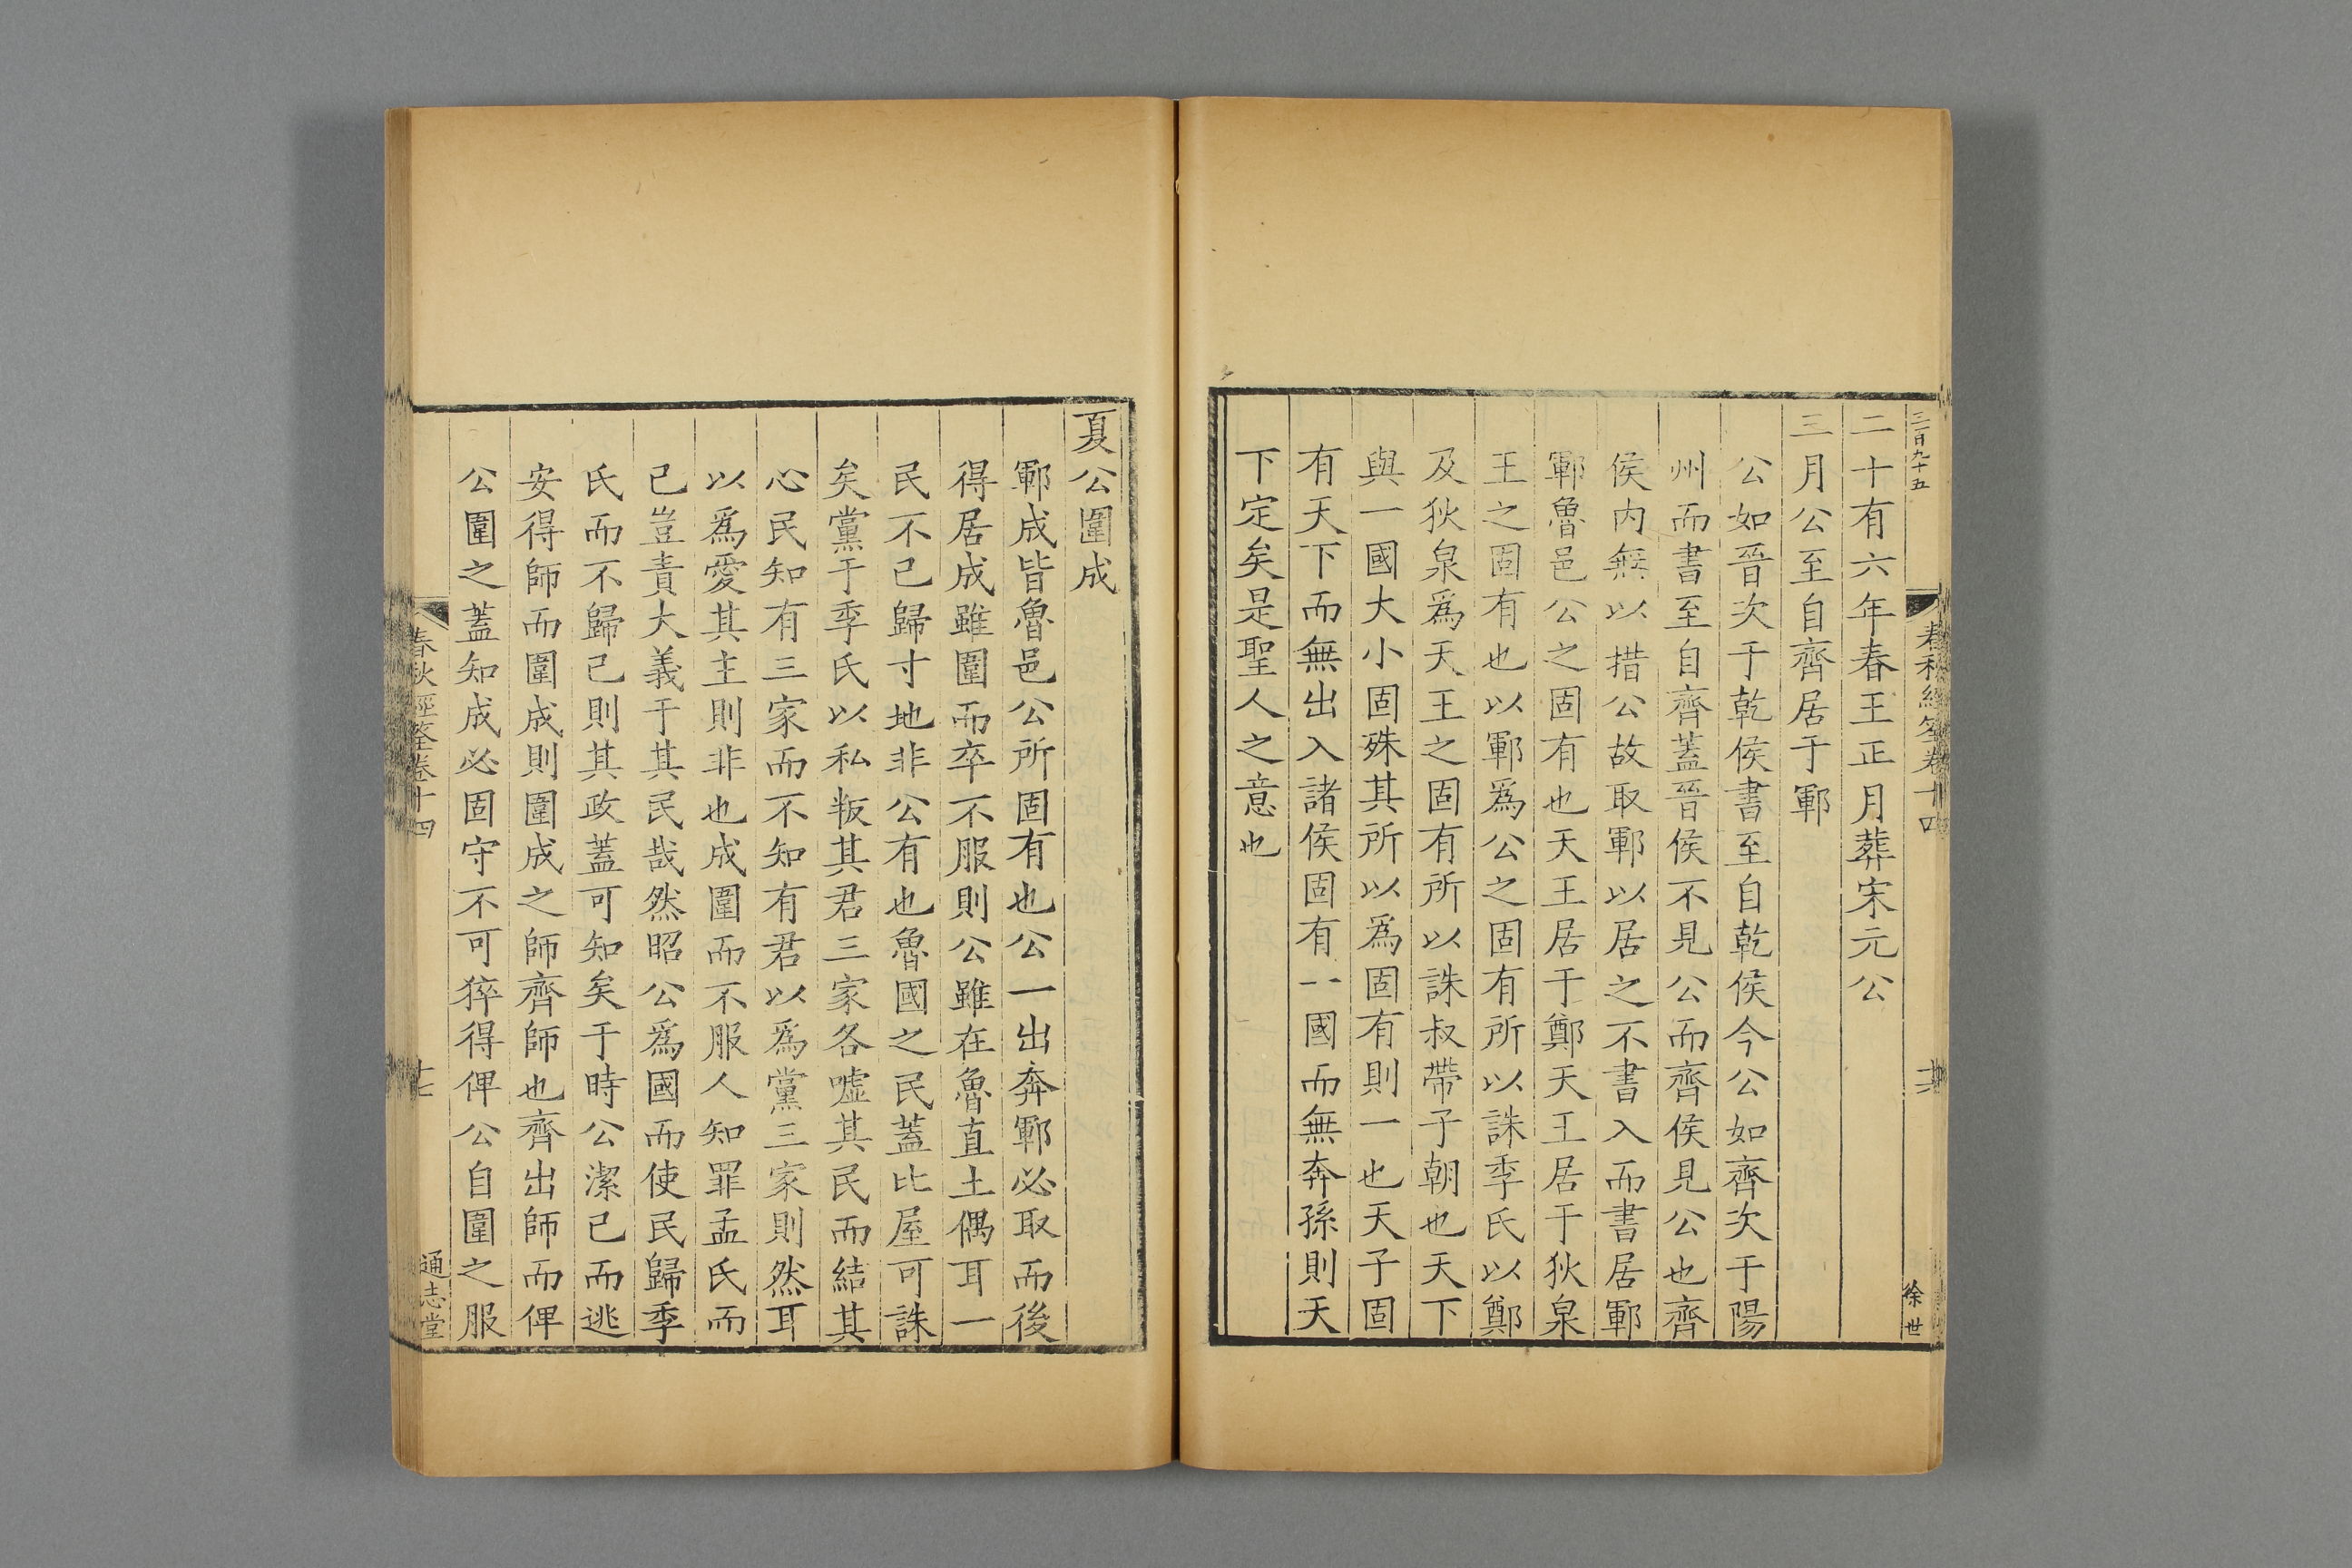 三百九十五
春秋經筌卷十四
十六
徐世
二十有六年春王正月葬宋元公
三月公至自齊居于鄆
公如晉次于乾侯書至自乾侯今公如齊次于陽
州而書至自齊蓋晉侯不見公而齊侯見公也齊
侯内無以措公故取鄆以居之不書入而書居鄆
鄆魯邑公之固有也天王居于鄭天王居于狄泉
王之固有也以鄆爲公之固有所以誅季氏以鄭
及狄泉爲天王之固有所以誅叔帶子朝也天下
與一國大小固殊其所以爲固有則一也天子固
有天下而無出入諸侯固有一國而無奔孫則天
下定矣是聖人之意也
夏公圍成
鄆成皆魯邑公所固有也公一出奔鄆必取而後
得居成雖圍而卒不服則公雖在魯直土偶耳一
民不已歸寸地非公有也魯國之民蓋比屋可誅
矣黨于季氏以私叛其君三家各噓其民而結其
心民知有三家而不知有君以爲黨三家則然耳
以爲愛其主則非也成圍而不服人知罪孟氏而
已豈責大義于其民哉然昭公爲國而使民歸季
氏而不歸已則其政蓋可知矣于時公潔已而逃
安得師而圍成則圍成之師齊師也齊出師而俾
公圍之蓋知成必固守不可猝得俾公自圍之服
春秋經筌卷十四
十七
通志堂